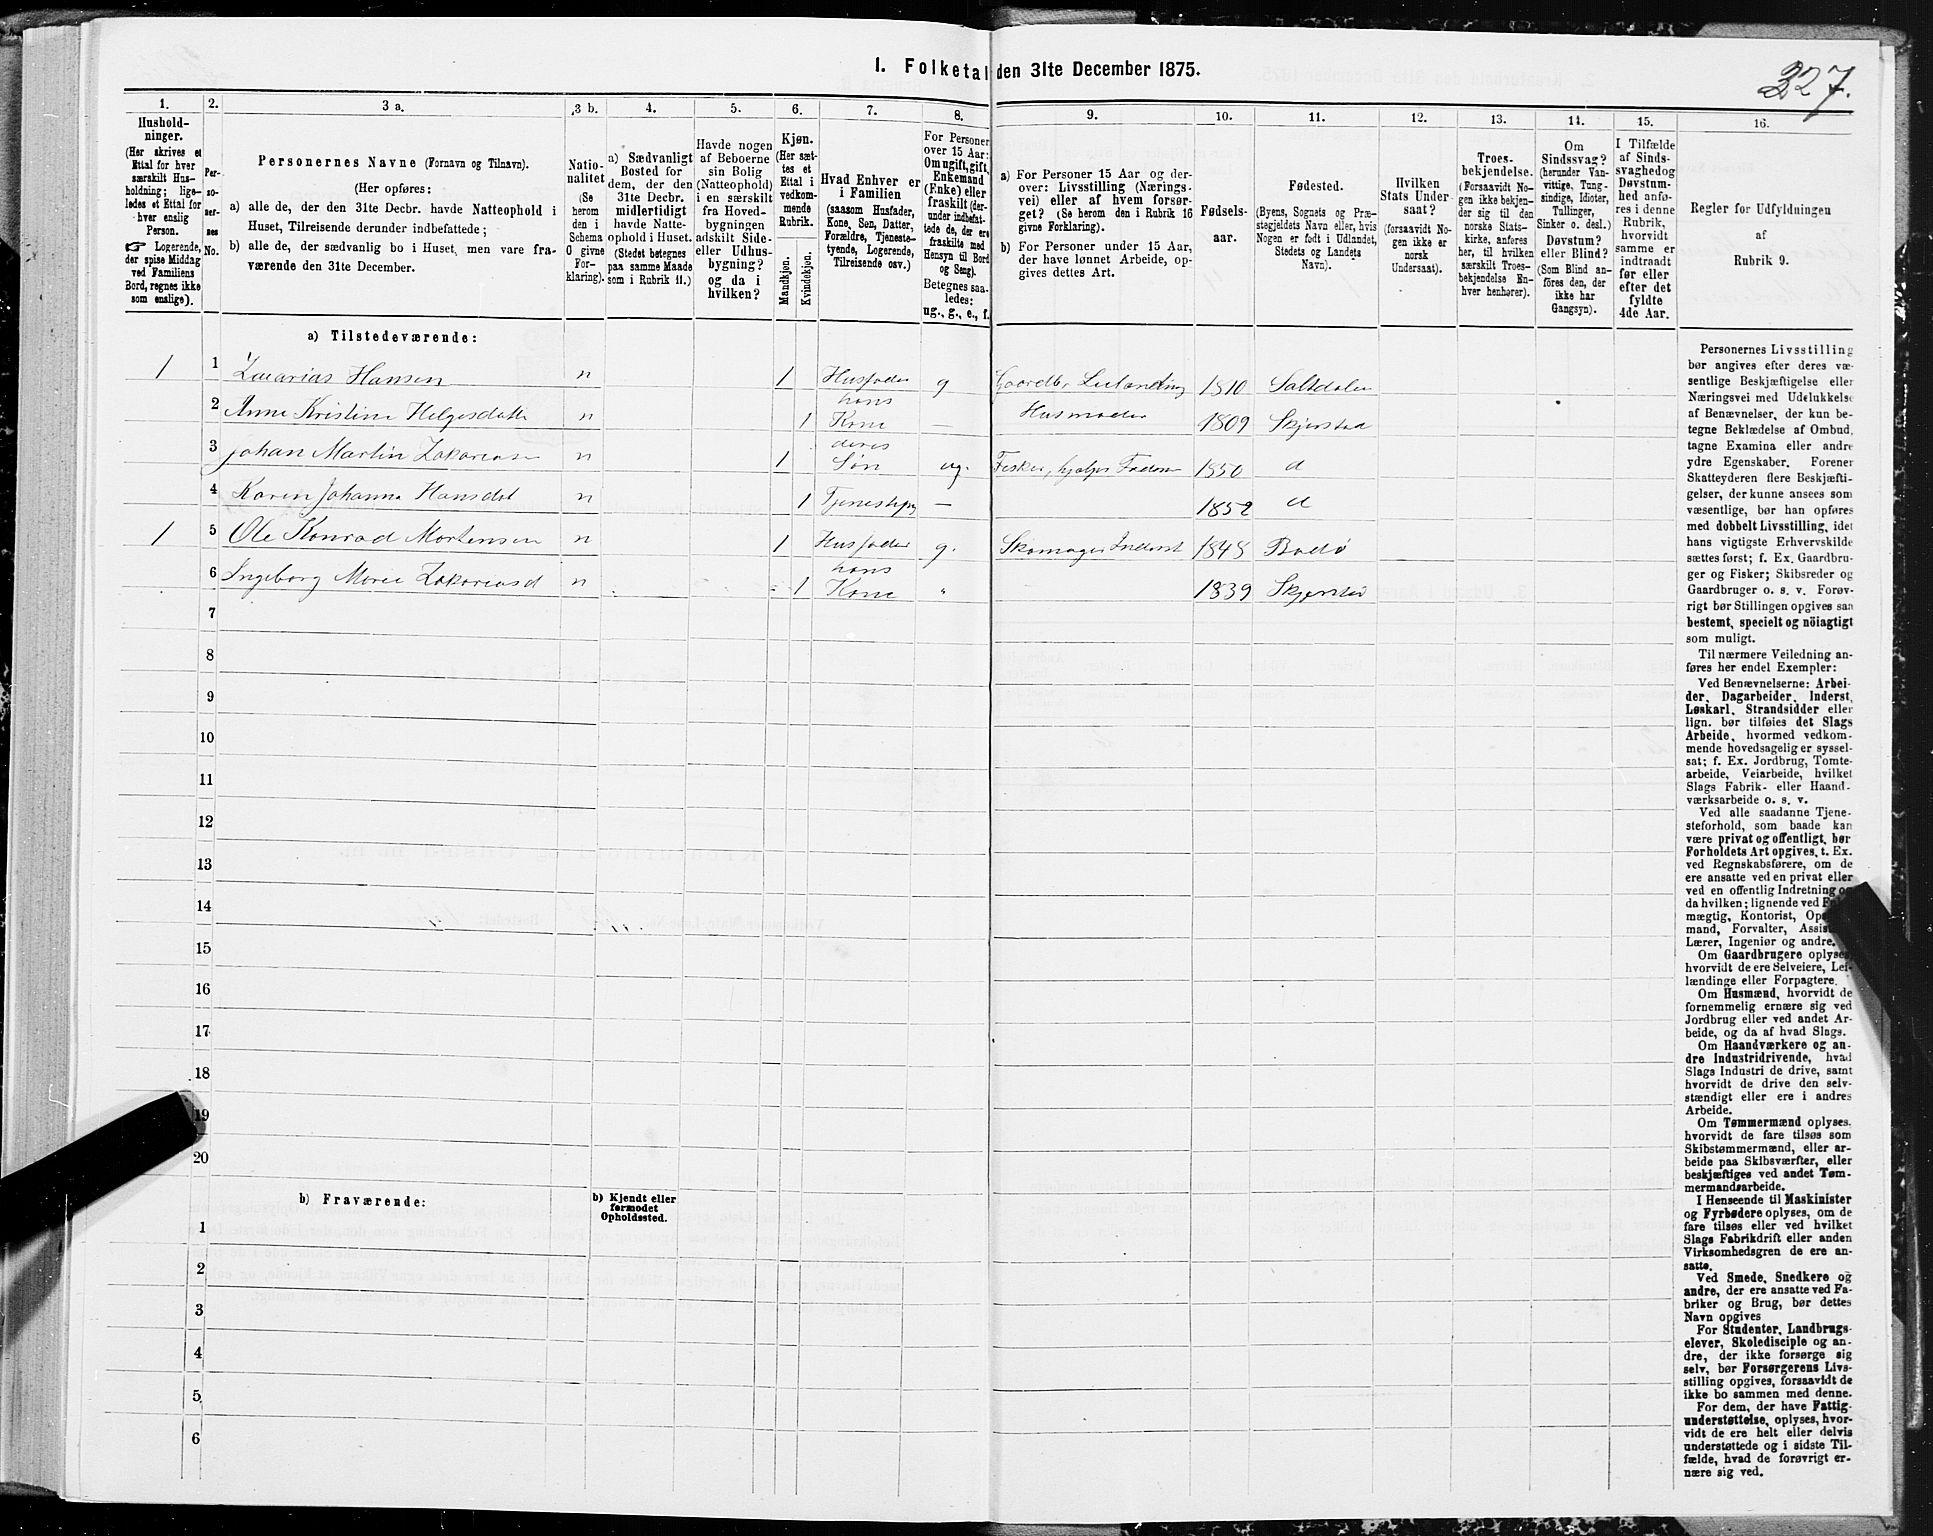 1. Folketal den 31te December 1875.
327.
1.
Hushold-
ninger.
(Her skrives et
Ettal for hver
særskilt Hus-
holdning; lige-
ledes et Ettal for
hver enslig
Person.
☞ Logerende,
der spise Middag
ved Familiens
Bord, regnes ikke
som enslige).
2.
Per-
so-
ner-
nes
No.
3 a.
Personernes Navne (Fornavn og Tilnavn).
(Her opføres:
a) alle de, der den 31te Decbr. havde Natteophold i
Huset, Tilreisende derunder indbefattede;
b) alle de, der sædvanlig bo i Huset, men vare fra-
værende den 31te December.
3 b.
Natio-
nalitet
(Se
herom
den i
Schema
O givne
For-
klaring).
4.
a) Sædvanligt
Bosted for
dem, der den
31te Decbr.
midlertidigt
havde Natte-
ophold i Huset.
(Stedet betegnes
paa samme Maade
som i Rubrik 11.)
5.
Havde nogen
af Beboerne
sin Bolig
(Natteophold)
i en særskilt
fra Hoved-
bygningen
adskilt Side-
eller Udhus-
bygning?
og da i
hvilken?
6.
Kjøn.
(Her sæt-
tes et
Ettal i
vedkom-
mende
Rubrik.
Mandkjøn.
Kvindekjøn.
7.
Hvad Enhver er
i Familien
(saasom Husfader,
Kone, Søn, Datter,
Forældre, Tjeneste-
tyende, Logerende,
Tilreisende osv.)
8.
For Personer
over 15 Aar:
Om ugift, gift,
Enkemand
(Enke) eller
fraskilt (der-
under indbefat-
tede de, der ere
fraskilte med
Hensyn til Bord
og Seng).
Betegnes saa-
ledes:
ug., g., e., f.
9.
a) For Personer 15 Aar og der-
over: Livsstilling (Nærings-
vei) eller af hvem forsør-
get? (Se herom den i Rubrik 16
givne Forklaring).
b) For Personer under 15 Aar,
der have lønnet Arbeide, op-
gives dettes Art.
10.
Fødsels-
aar.
11.
Fødested.
(Byens, Sognets og Præ-
stegjeldets Navn eller, hvis
Nogen er født i Udlandet,
Stedets og Landets
Navn).
12.
Hvilken
Stats Under-
saat?
(forsaavidt No-
gen ikke er
norsk
Undersaat).
13.
Troes-
bekjendelse.
(Forsaavidt No-
gen ikke bekjen-
der sig til den
norske Stats-
kirke, anføres
her, til hvilken
særskilt Troes-
bekjendelse En-
hver henhører).
14.
Om
Sindssvag?
(herunder Van-
vittige, Tung-
sindige, Idioter,
Tullinger,
Sinker o. desl.)
Døvstum?
eller Blind?
(Som Blind an-
føres den, der
ikke har
Gangsyn).
15.
I Tilfælde
af Sinds-
svaghed og
Døvstum-
hed anfø-
res i denne
Rubrik,
hvorvidt
samme er
indtraadt
før eller
efter det
fyldte
4de Aar.
16.
Regler for Udfyldningen
af
Rubrik 9.
a) Tilstedeværende:
1 1 Zacarias Hansen n 1 Husfader g Gaardbr Leilænding 1810 Saltdalen
2 Anne Kristine Helgesdatt n 1 hans Kone — Husmoder 1809 Skjerstad
3 Johan Martin Zakariasen n 1 deres Søn ug. Fisker, hjelper Faderen 1850 d
4 Karen Johanna Hansdat n 1 — 1852 d
1 5 Ole Konrad Mortensen n 1 Husfader g. Skomager Inderst 1848 Bodø
6 Ingeborg Marie Zakariasd n 1 hans Kone " 1839 Skjerstad
7
8
9
10
11
12
13
14
15
16
17
18
19
20
b) Fraværende:
b) Kjendt eller
formodet
Opholdssted.
1
2
3
4
5
6
Personernes Livsstilling
bør angives efter deres væ-
sentlige Beskjæftigelse eller
Næringsvei med Udelukkelse
af Benævnelser, der kun be-
tegne Beklædelse af Ombud,
tagne Examina eller andre
ydre Egenskaber. Forener
Skatteyderen flere Beskjæfti-
gelser, der kunne ansees som
væsentlige, bør han opføres
med dobbelt Livsstilling, idet
hans vigtigste Erhvervskilde
sættes først; f. Ex. Gaardbru-
ger og Fisker; Skibsreder og
Gaardbruger o. s. v. Forøv-
rigt bør Stillingen opgives saa
bestemt, specielt og nöiagtigt
som muligt.
Til nærmere Veiledning an-
føres her endel Exempler:
Ved Benævnelserne: Arbei-
der, Dagarbeider, Inderst,
Løskarl, Strandsidder eller
lign. bør tilføies det Slags
Arbeide, hvormed vedkom-
mende hovedsagelig er syssel-
sat; f. Ex. Jordbrug, Tomte-
arbeide, Veiarbeide, hvilket
Slags Fabrik- eller Haand-
værksarbeide o. s. v.
Ved alle saadanne Tjene-
steforhold, som baade kan
være privat og offentligt, bør
Forholdets Art opgives, t. Ex.
ved Regnskabsførere, om de
ere ansatte ved en privat eller
ved en offentlig Indretning og
da hvilken; lignende ved
mægtig, Kontorist,
mand, Forvalter,
Lærer, Ingeniør og andre.
Om Gaardbrugere oplyses,
hvorvidt de ere Selveiere, Lei-
lændinge eller Forpagtere.
Om Husmænd, hvorvidt de
fornemmelig ernære sig ved
Jordbrug eller ved andet Ar-
beide, og da af hvad Slags.
Om Haandværkere og an-
dre Industridrivende, hvad
Slags Industri de drive, samt
hvorvidt de drive den selv-
stændigt eller ere i andres
Arbeide.
Om Tømmermænd oplyses,
hvorvidt de fare tilsøs som
Skibstømmermænd, eller ar-
beide paa Skibsværfter, eller
beskjæftiges ved andet Tøm-
mermandsarbeide.
I Henseende til Maskinister
og Fyrbødere oplyses, om de
fare tilsøs eller ved hvilket
Slags Fabrikdrift eller anden
Virksomhedsgren de ere an-
satte.
Ved Smede, Snedkere og
andre, der ere ansatte ved Fa-
briker og Brug, bør dettes
Navn opgives
For Studenter, Landbrugs-
elever, Skoledisciple og an-
dre, der ikke forsørge sig
selv, bør Forsørgerens Livs-
stilling opgives, forsaavidt de
ikke bo sammen med denne.
For dem, der have Fattig-
understøttelse, oplyses, hvor-
vidt de ere helt eller delvis
understøttede og i sidste Til-
fælde, hvad de forøvrigt er-
nære sig ved.